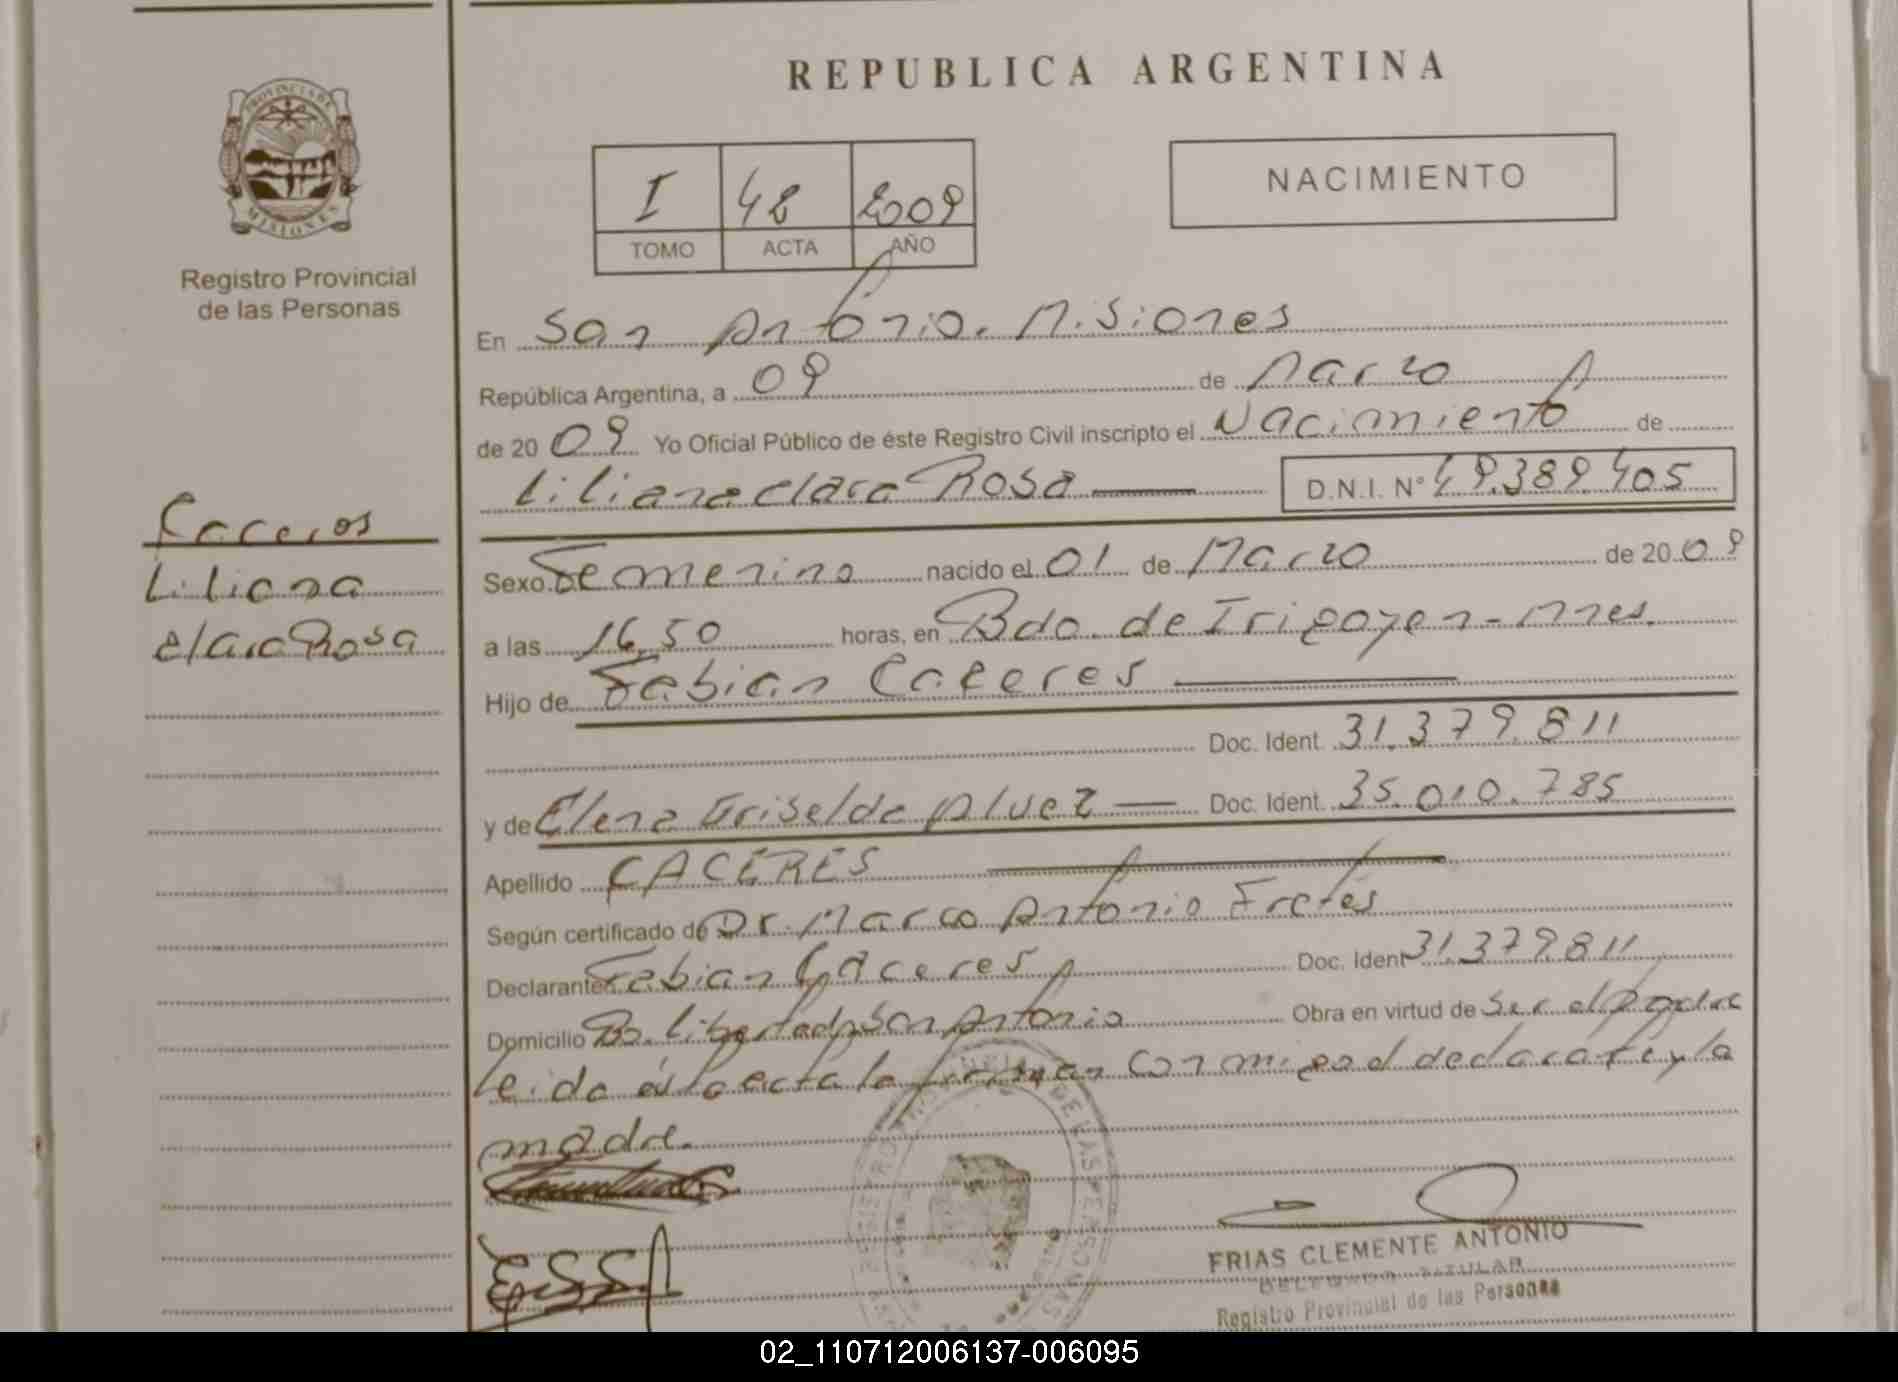 REPUBLICA ARGENTINA
PROVINCIA DE
MISIONES
Registro Provincial
de las Personas
I 48 2009
TOMO ACTA AÑO
NACIMIENTO
En San Antonio. Misiones
República Argentina, a 09 de Marzo
de 20 09 Yo Oficial Público de éste Registro Civil inscripto el Nacimiento de
Liliana Clara Rosa D.N.I. N° 49.389.405
Caceres
Liliana
Clara Rosa
Sexo Femenino nacido el 01 de Marzo de 20 09
a las 16,50 horas, en Bdo. de Irigoyen - Mnes.
Hijo de Fabian Caceres
Doc. Ident. 31.379.811
y de Elena Griselda Alvez Doc. Ident. 35.010.785
Apellido CACERES
Según certificado de Dr. Marco Antonio Fretes
Declarante Fabian Caceres Doc. Ident 31.379.811
Domicilio Bo. Libertad San Antonio Obra en virtud de Ser el Padre
Leida el acta la firman conmigo el declarante y la
madre.
FRIAS CLEMENTE ANTONIO
DELEGADO TITULAR
Registro Provincial de las Personas
02_110712006137-006095